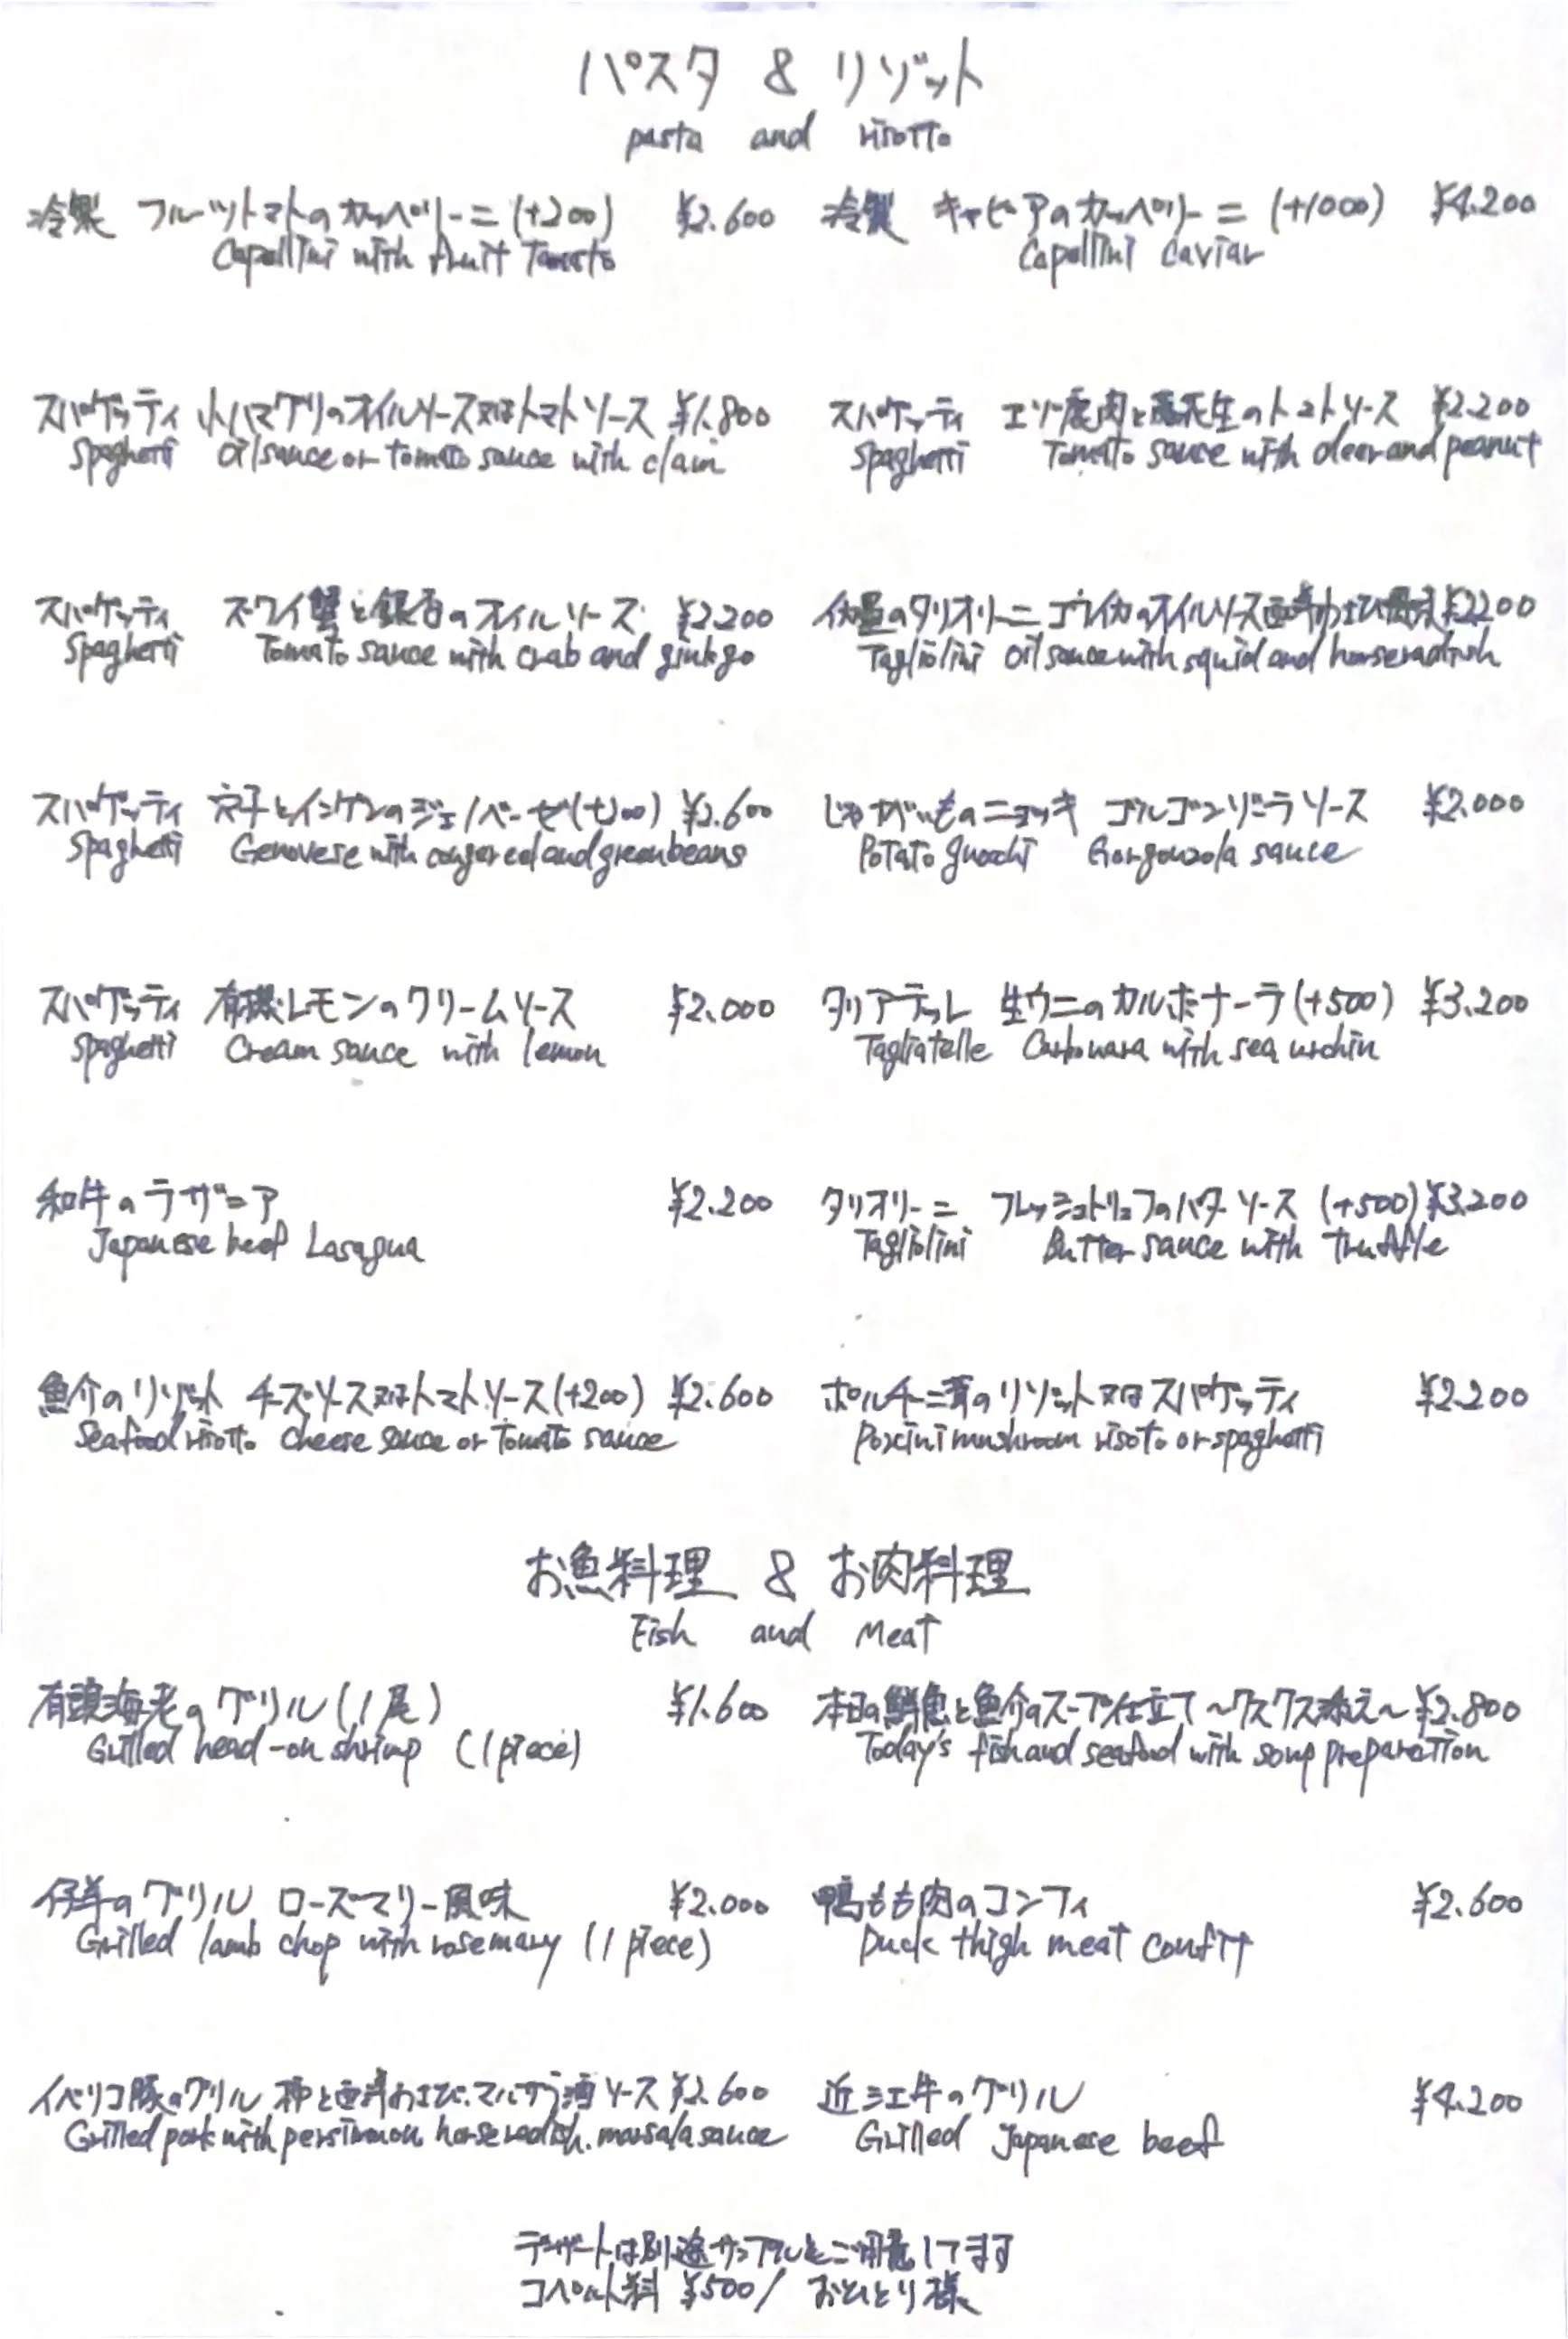 パスタ & リゾット
pasta and risotto
冷製 フルーツトマトのカッペリーニ (+200) ¥2.600
Capellini with fruit Tomato
冷製 キャビアのカッペリーニ (+1000) ¥4.200
Capellini caviar
スパゲッティ 小ハマグリのオイルソース又はトマトソース ¥1.800
Spaghetti Oil sauce or tomato sauce with clam
スパゲッティ エゾ鹿肉と落花生のトマトソース ¥2.200
Spaghetti Tomato sauce with deer and peanut
スパゲッティ ズワイ蟹と銀杏のオイルソース ¥2.200
Spaghetti Tomato sauce with crab and ginkgo
のタリオリーニ ゴウイカのオイルソース西洋わさび風味 ¥2.200
Tagliolini Oil sauce with squid and horseradish
スパゲッティ 穴子とインゲンのジェノベーゼ ¥2.600
Spaghetti Genovese with conger eel and green beans
じゃがいものニョッキ ゴルゴンゾーラソース ¥2.000
Potato gnocchi Gorgonzola sauce
スパゲッティ 有機レモンのクリームソース ¥2.000
Spaghetti Cream sauce with lemon
タリアテッレ 生ウニのカルボナーラ (+500) ¥3.200
Tagliatelle Carbonara with sea urchin
和牛のラザニア ¥2.200
Japanese beef Lasagna
タリオリーニ フレッシュトリュフのバターソース (+500) ¥3.200
Tagliolini Butter sauce with truffle
魚介のリゾット チーズソース又はトマトソース (+200) ¥2.600
Seafood risotto cheese sauce or Tomato sauce
ポルチーニ茸のリゾット又はスパゲッティ ¥2.200
Porcini mushroom risoto or spaghetti
お魚料理 & お肉料理
Fish and Meat
有頭海老のグリル (1尾) ¥1.600
Grilled head-on shrimp (1 piece)
本日の鮮魚と魚介のスープ仕立て ~クスクス添え~ ¥2.800
Today's fish and seafood with soup preparation
仔羊のグリル ローズマリー風味 ¥2.000
Grilled lamb chop with rosemary (1 piece)
鴨もも肉のコンフィ ¥2.600
Duck thigh meat confit
イベリコ豚のグリル 柿と西洋わさび.マルサラ酒ソース ¥2.600
Grilled pork with persimmon horseradish. marsala sauce
近江牛のグリル ¥4.200
Grilled Japanese beef
デザートは別途サンプルをご用意してます
コペルト料 ¥500/ おひとり様